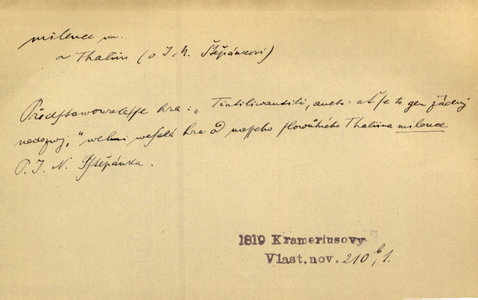 milenec m.
~ Thaliin (o J. N. Štěpánkovi)
Předstawowalasse hra: „Tintiliwantili, aneb: ať se to gen žádný
nedozwj," welmi weselá hra od nasseho slowutného Thaliina milence
P. J. N. Sstěpánka.
1819 Krameriusovy
Vlast. nov. 210, b, 1.